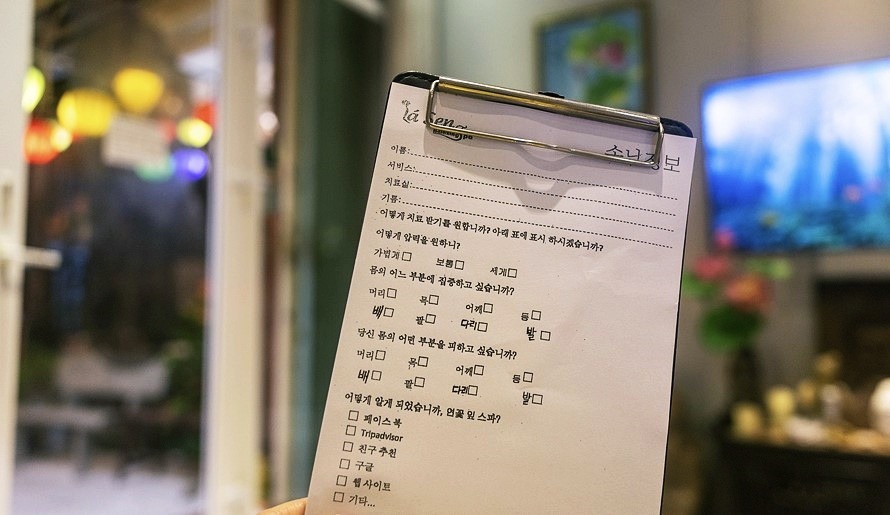 lá Sen
소나정보
이름:
서비스:
치료실:
기름:
어떻게 치료 받기를 원합니까? 아래 표에 표시 하시겠습니까?
어떻게 압력을 원하니?
가볍게 보통 세게
몸의 어느 부분에 집중하고 싶습니까?
머리 목 어께 등
배 팔 다리 발
당신 몸의 어떤 부분을 피하고 싶습니까?
머리 목 어께 등
배 팔 다리 발
어떻게 알게 되었습니까, 연꽃 잎 스파?
페이스 북
Tripadvisor
친구 추천
구글
웹 사이트
기타...